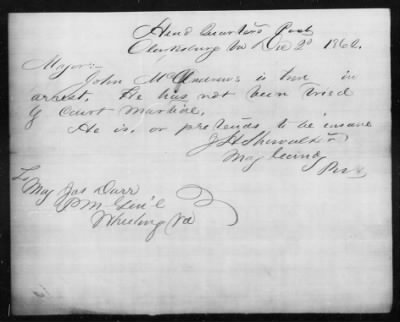 Head Quarters Post
Clarksburg Va Dec 2d 1862.
Major:-
John McAndrews is here in
arrest. He has not been tried
by Court Martial.
He is, or pretends to be insane
J H Showalter
Maj Comdg
Post
To
Maj Jos Darr
P M Gen'l
Wheeling Va